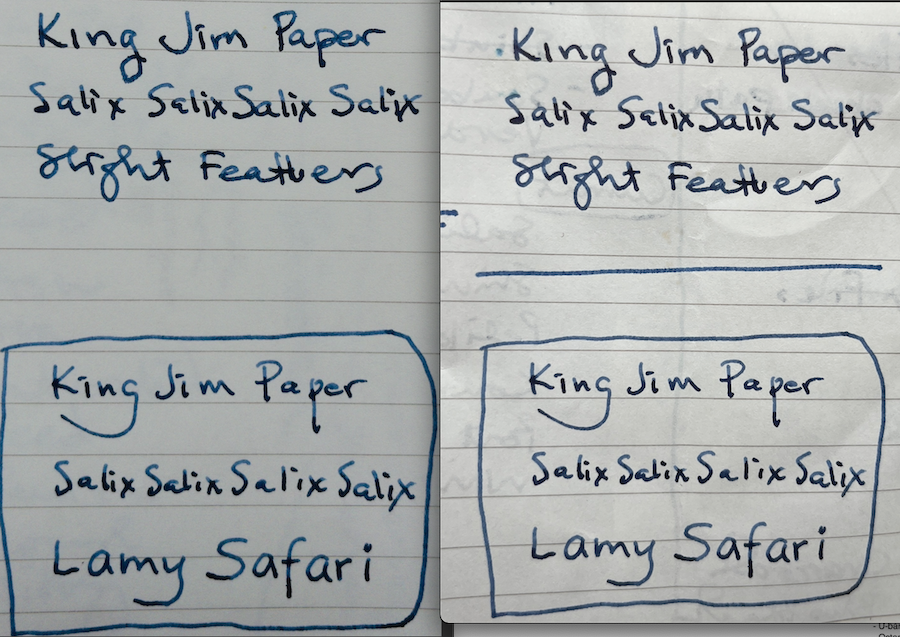 King Jim Paper
Salix Salix Salix Salix
Slight Feathers
King Jim Paper
Salix Salix Salix Salix
Lamy Safari
King Jim Paper
Salix Salix Salix Salix
Slight Feathers
King Jim Paper
Salix Salix Salix Salix
Lamy Safari